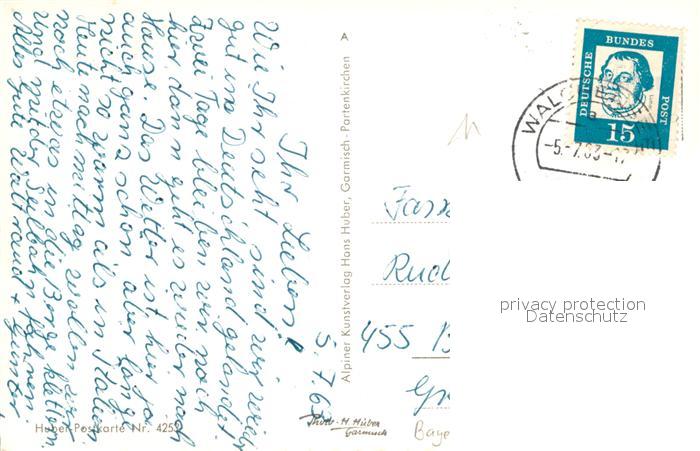 Ihr Lieben!
5.7.63
Wie Ihr seht sind wir wieder
gut in Deutschland gelandet.
Zwei Tage bleiben wir noch
hier, dann geht es wieder nach
Hause. Das Wetter ist hier ja
auch ganz schön aber lange
nicht so warm als in Italien
Heute nachmittag wollen wir
noch etwas in die Berge klettern
und mit der Seilbahn fahren.
Alles Gute Waltraud + Günter.
A
Alpiner Kunstverlag Hans Huber, Garmisch-Partenkirchen
Huber-Postkarte Nr. 425
Photo-H. Huber
Garmisch
DEUTSCHE
BUNDES
POST
15
WALG
a
-5.-7.63-1
Fass
Rud
455 B
Gr
Baye
privacy protection
Datenschutz